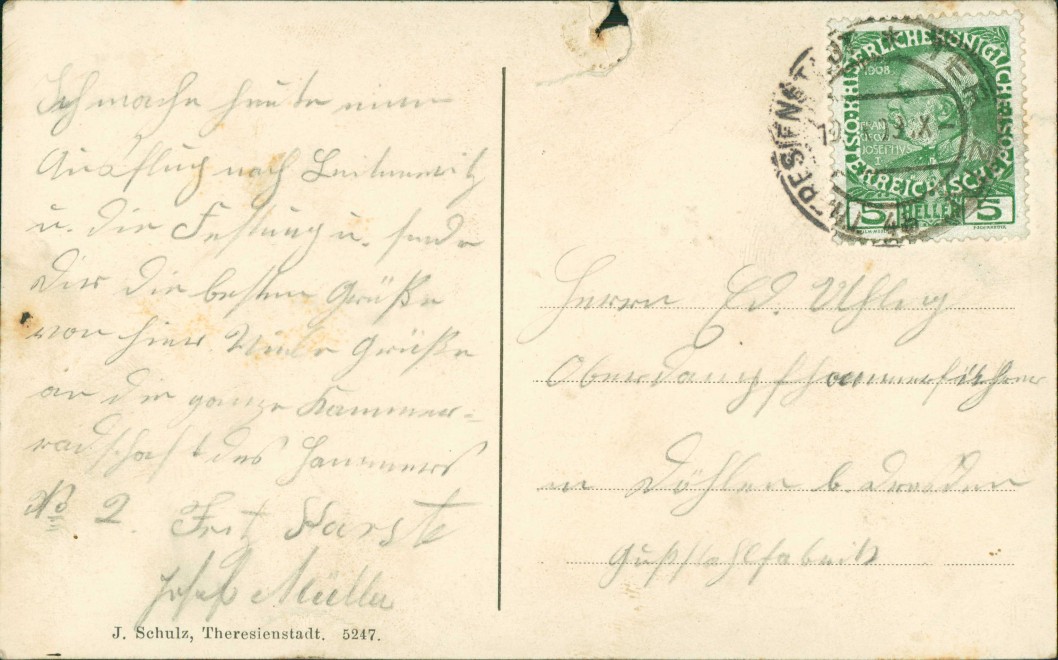 Ich mache heute einen
Ausflug nach Leitmeritz
u. die Festung u. sende
Dir die besten Grüße
von hier. Viele Grüße
an die ganze Kammer-
radschaft des Hammers
No 2. Karste
Josef Müller
J. Schulz, Theresienstadt. 5247.
KAISERLICHE KÖNIGLICHE
ÖSTERREICHISCHE POST
1908
FRAN
JOSEPHVS
I.
5 HELLER 5
THERESIENSTADT
X
Herrn Ed. Uhlig
Oberdampfhammerführer
in Döhlen b. Dresden
Gußstahlfabrik